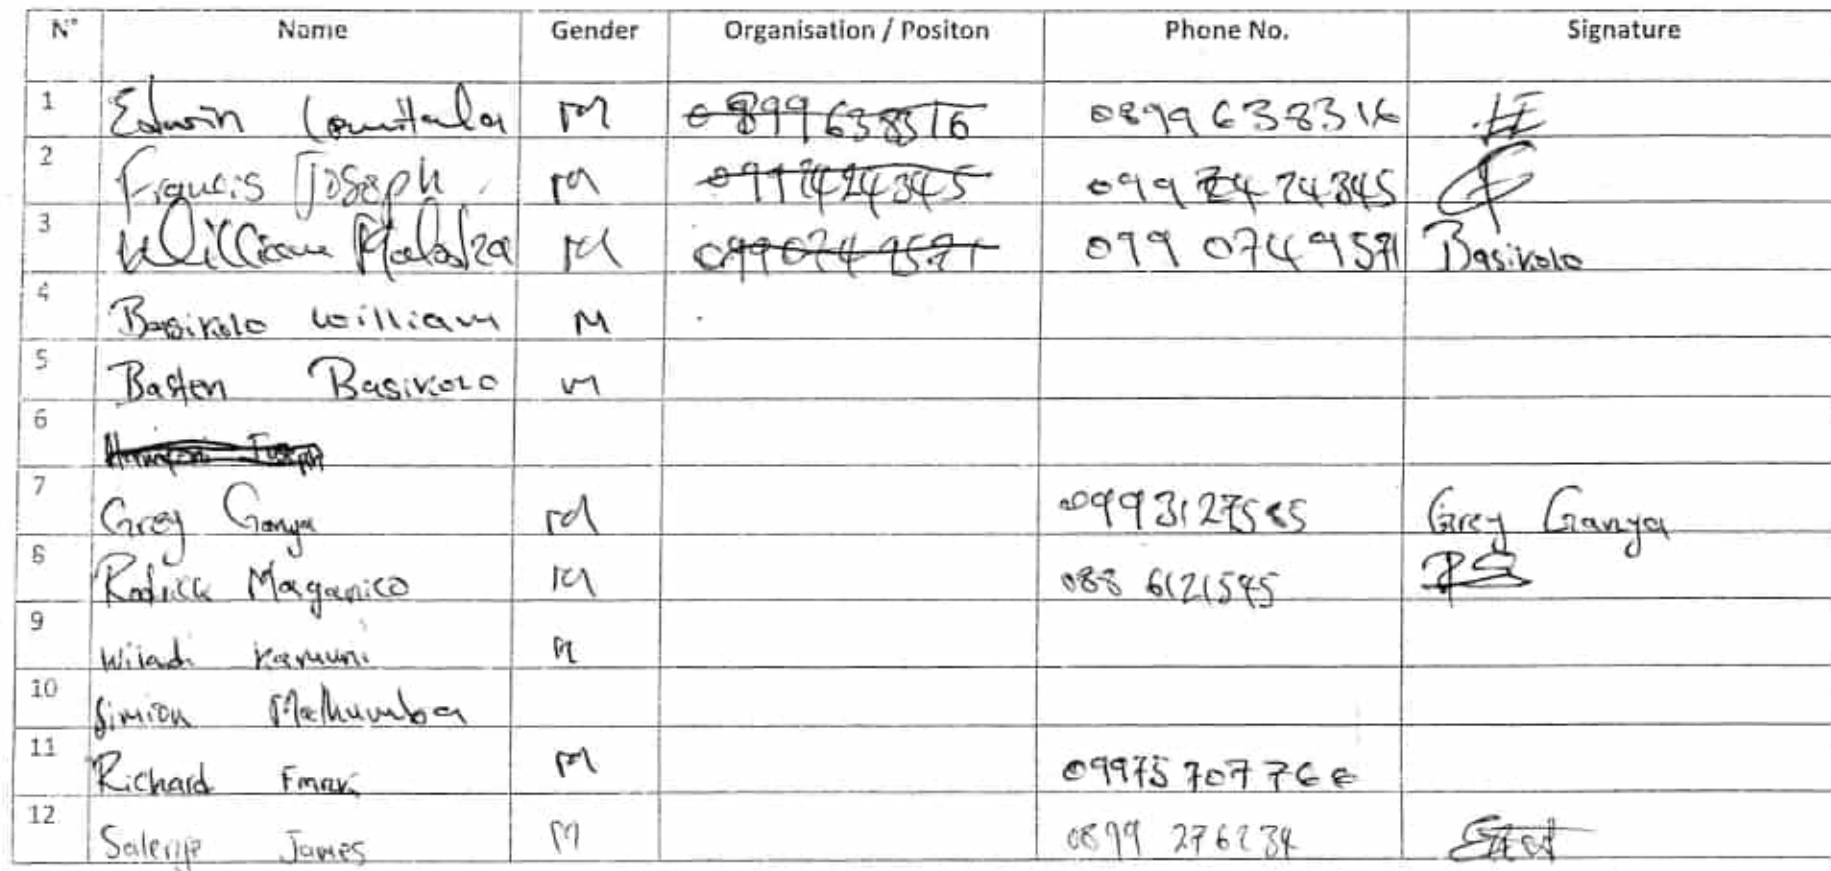 N° Name Gender Organisation / Positon Phone No. Signature
1 Edwin M 0899638316 0899638316
2 Francis Joseph M 0997424345 0997424345
3 William M 0990749571 0990749571 Basikolo
4 Basikolo William M
5 Basten Basikolo M
6
7 Grey Ganya M 0993127585 Grey Ganya
8 Rodrick Maganico M 088 6121545
9 Kamuni M
10 Simion
11 Richard M
12 James M 0899 276234